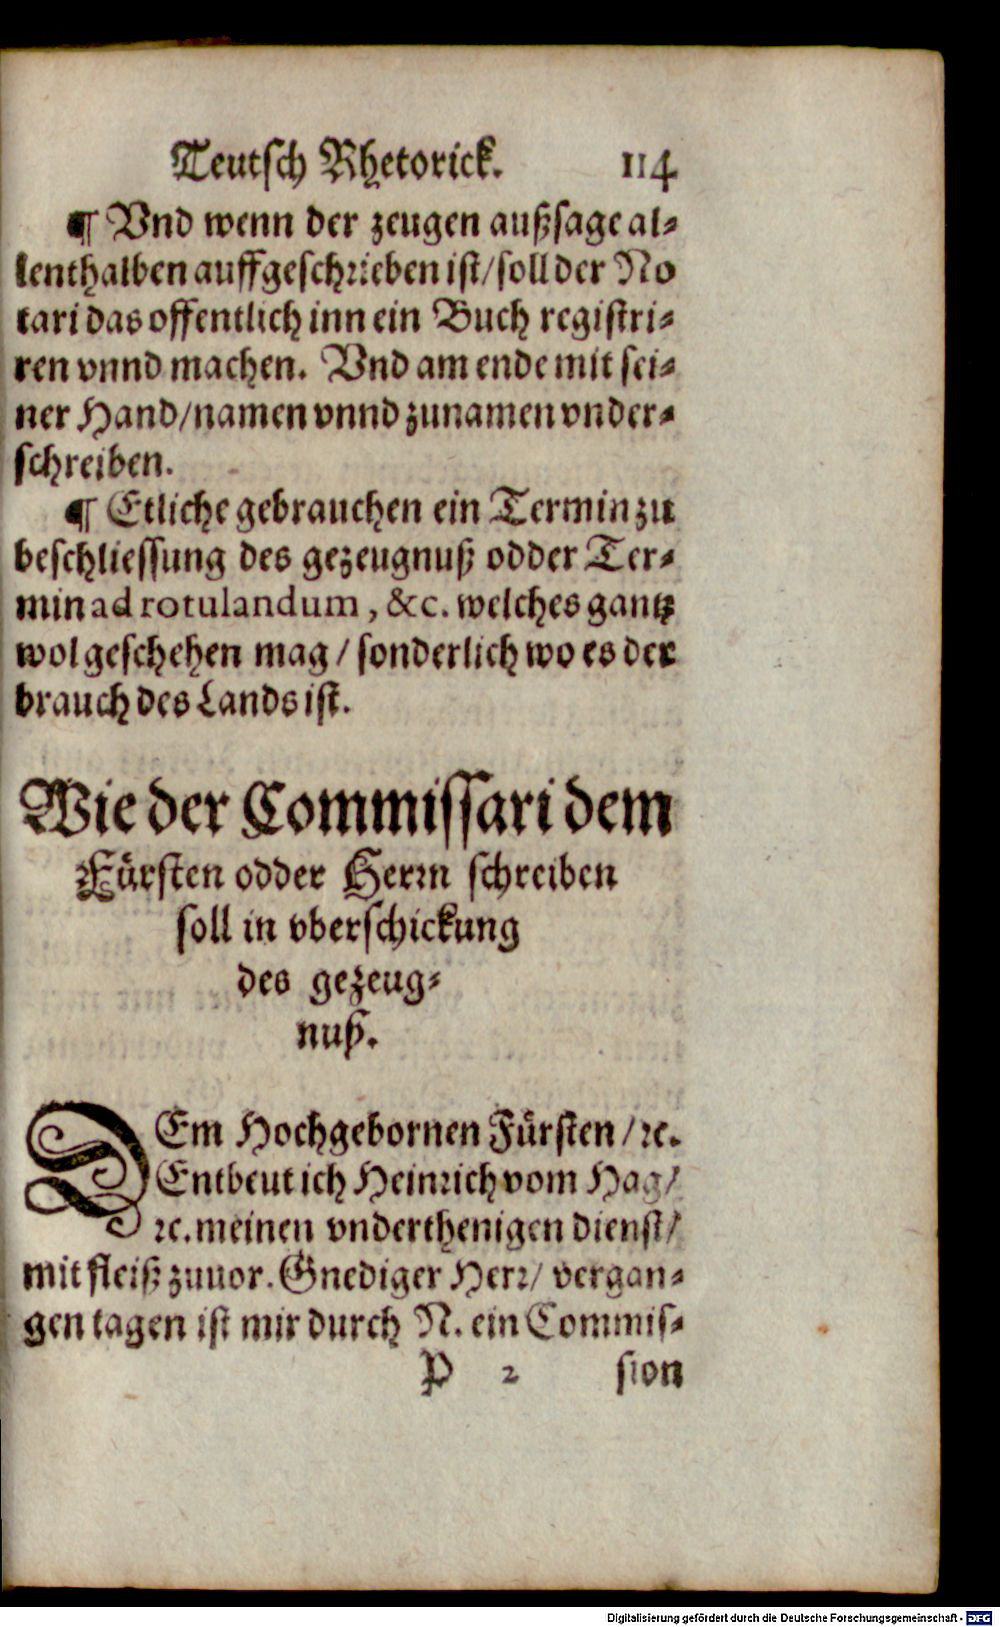 Teutsch Rhetorick. 114
¶ Vnd wenn der zeugen außsage al⸗
lenthalben auffgeschrieben ist/ soll der No
tari das offentlich inn ein Buch registri⸗
ren vnnd machen. Vnd am ende mit sei⸗
ner Hand/ namen vnnd zunamen vnder⸗
schreiben.
¶ Etliche gebrauchen ein Termin zu
beschliessung des gezeugnuß odder Ter⸗
min ad rotulandum, &c. welches gantz
wol geschehen mag / sonderlich wo es der
brauch des Lands ist.
Wie der Commissari dem
Fürsten odder Herrn schreiben
soll in vberschickung
des gezeug⸗
nuß.
DEm Hochgebornen Fürsten /ꝛc.
Entbeut ich Heinrich vom Hag/
ꝛc. meinen vnderthenigen dienst/
mit fleiß zuuor. Gnediger Herr/ vergan⸗
gen tagen ist mir durch N. ein Commis⸗
P 2 sion
Digitalisierung gefördert durch die Deutsche Forschungsgemeinschaft - DFG